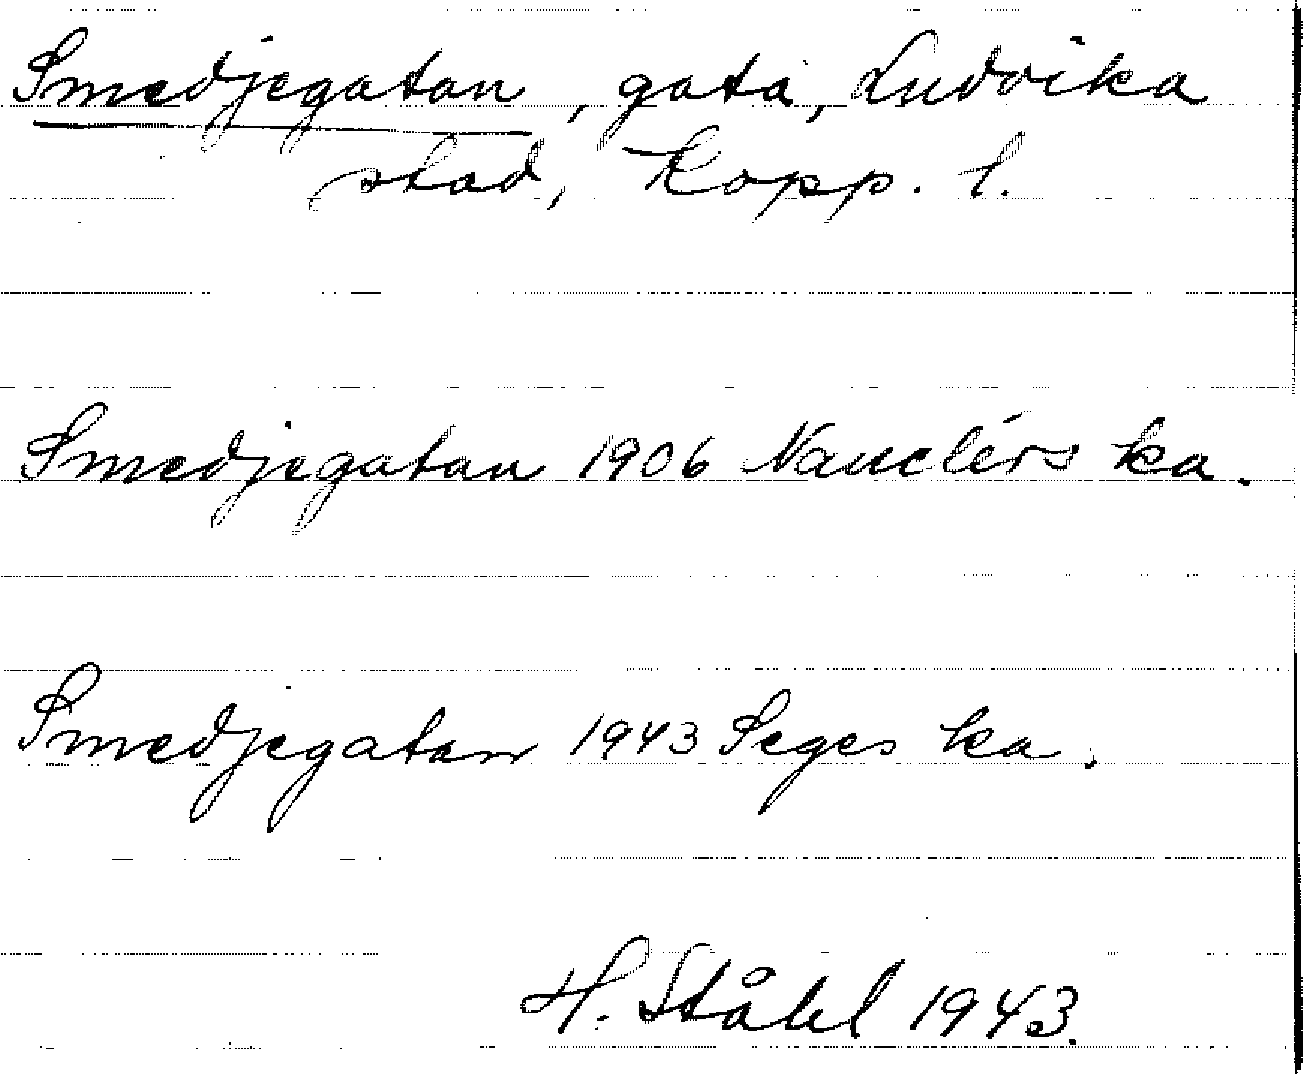 Smedjegatan, gata, Ludvika
stad, Kopp. l.
Smedjegatan 1906 Nauclérs ka.
Smedjegatan 1943 Seges ka.
H. Ståhl 1943.